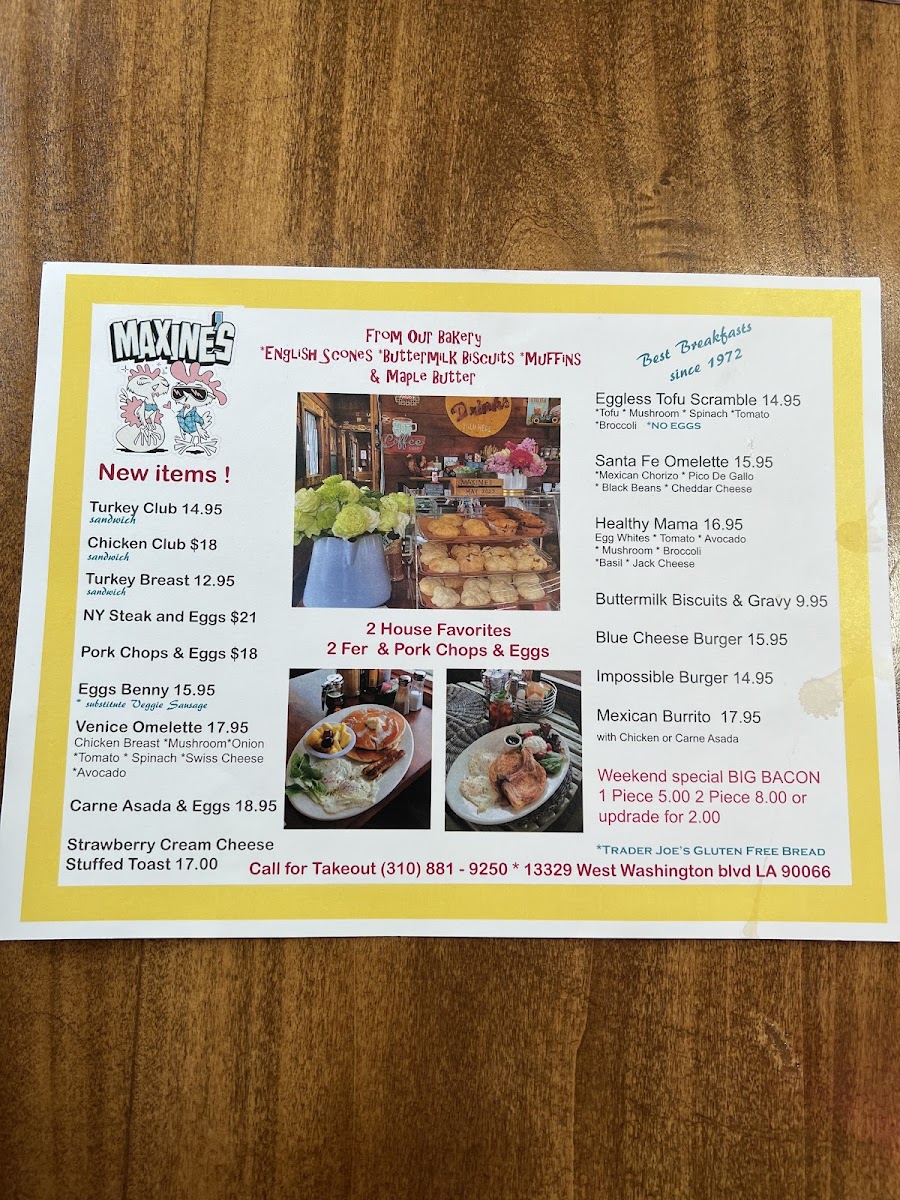 MAXINE'S
New items !
Turkey Club 14.95
sandwich
Chicken Club $18
sandwich
Turkey Breast 12.95
sandwich
NY Steak and Eggs $21
Pork Chops & Eggs $18
Eggs Benny 15.95
* substitute Veggie Sausage
Venice Omelette 17.95
Chicken Breast *Mushroom*Onion
*Tomato * Spinach *Swiss Cheese
*Avocado
Carne Asada & Eggs 18.95
Strawberry Cream Cheese
Stuffed Toast 17.00
From Our Bakery
*English Scones *Buttermilk Biscuits *Muffins
& Maple Butter
Drinks
Coffee
MAXINE'S
2 House Favorites
2 Fer & Pork Chops & Eggs
Best Breakfasts
since 1972
Eggless Tofu Scramble 14.95
*Tofu * Mushroom * Spinach *Tomato
*Broccoli *NO EGGS
Santa Fe Omelette 15.95
*Mexican Chorizo * Pico De Gallo
* Black Beans * Cheddar Cheese
Healthy Mama 16.95
Egg Whites * Tomato * Avocado
* Mushroom * Broccoli
*Basil * Jack Cheese
Buttermilk Biscuits & Gravy 9.95
Blue Cheese Burger 15.95
Impossible Burger 14.95
Mexican Burrito 17.95
with Chicken or Carne Asada
Weekend special BIG BACON
1 Piece 5.00 2 Piece 8.00 or
updrade for 2.00
*Trader Joe's Gluten Free Bread
Call for Takeout (310) 881 - 9250 * 13329 West Washington blvd LA 90066